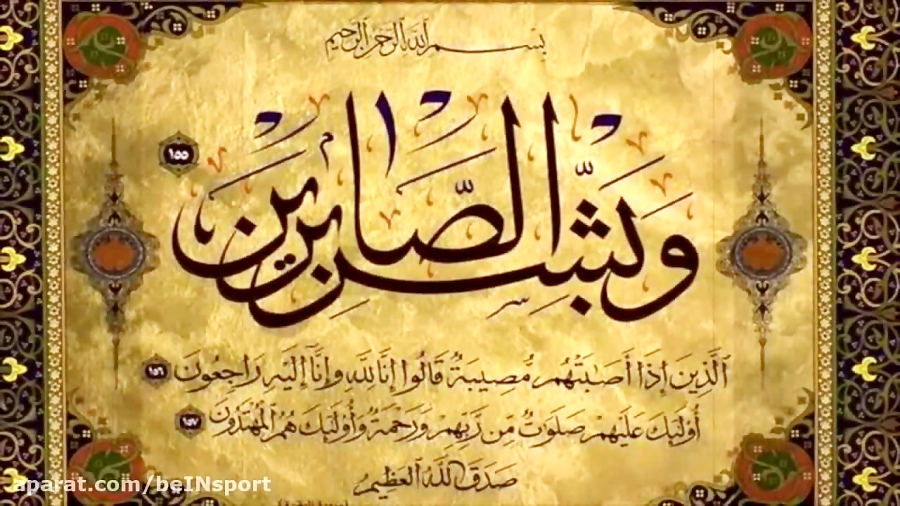 بسم الله الرحمن الرحيم
وَبَشِّرِ الصَّابِرِينَ ١٥٥
ٱلَّذِينَ إِذَا أَصَٰبَتْهُم مُّصِيبَةٌ قَالُوا إِنَّا لِلَّهِ وَإِنَّآ إِلَيْهِ رَاجِعُونَ ١٥٦
أُوْلَٰئِكَ عَلَيْهِمْ صَلَوَٰتٌ مِّن رَّبِّهِمْ وَرَحْمَةٌ وَأُوْلَٰئِكَ هُمُ ٱلْمُهْتَدُونَ ١٥٧
صَدَقَ اللَّهُ العَظِيم
aparat.com/beINsport